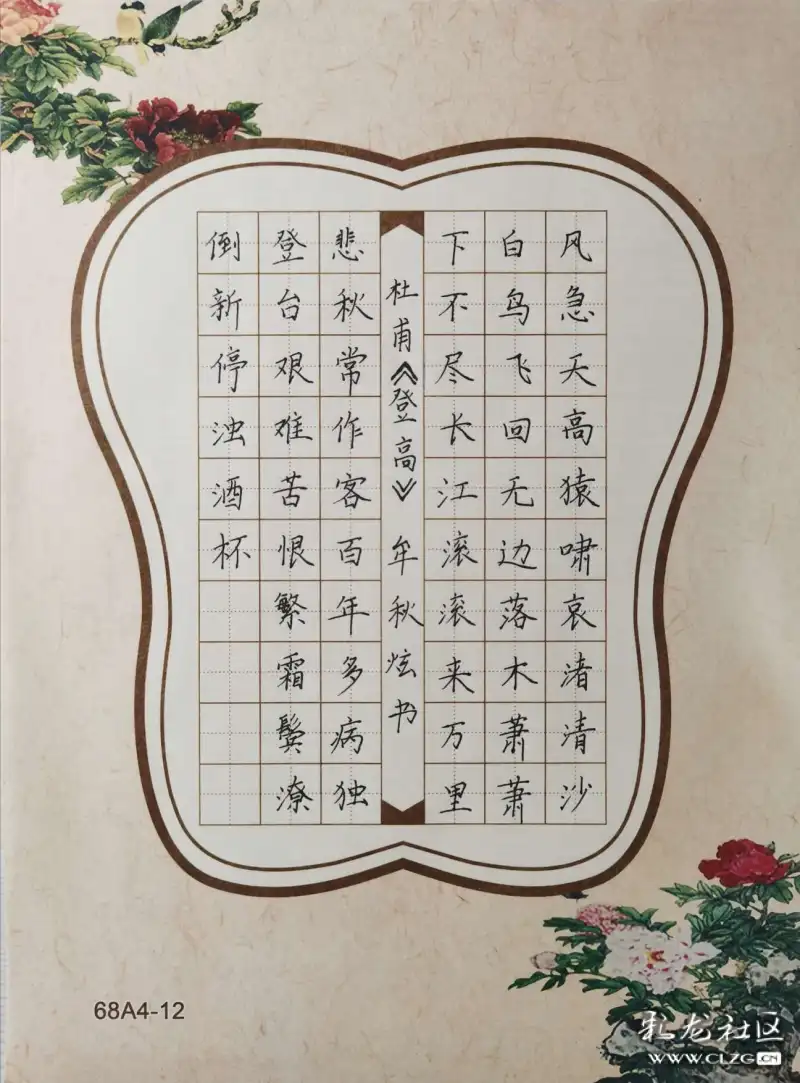 风急天高猿啸哀渚清沙
白鸟飞回无边落木萧萧
下不尽长江滚滚来万里
杜甫《登高》 牟秋炫书
悲秋常作客百年多病独
登台艰难苦恨繁霜鬓潦
倒新停浊酒杯
68A4-12
彩龙社区
WWW.CLZG.CN